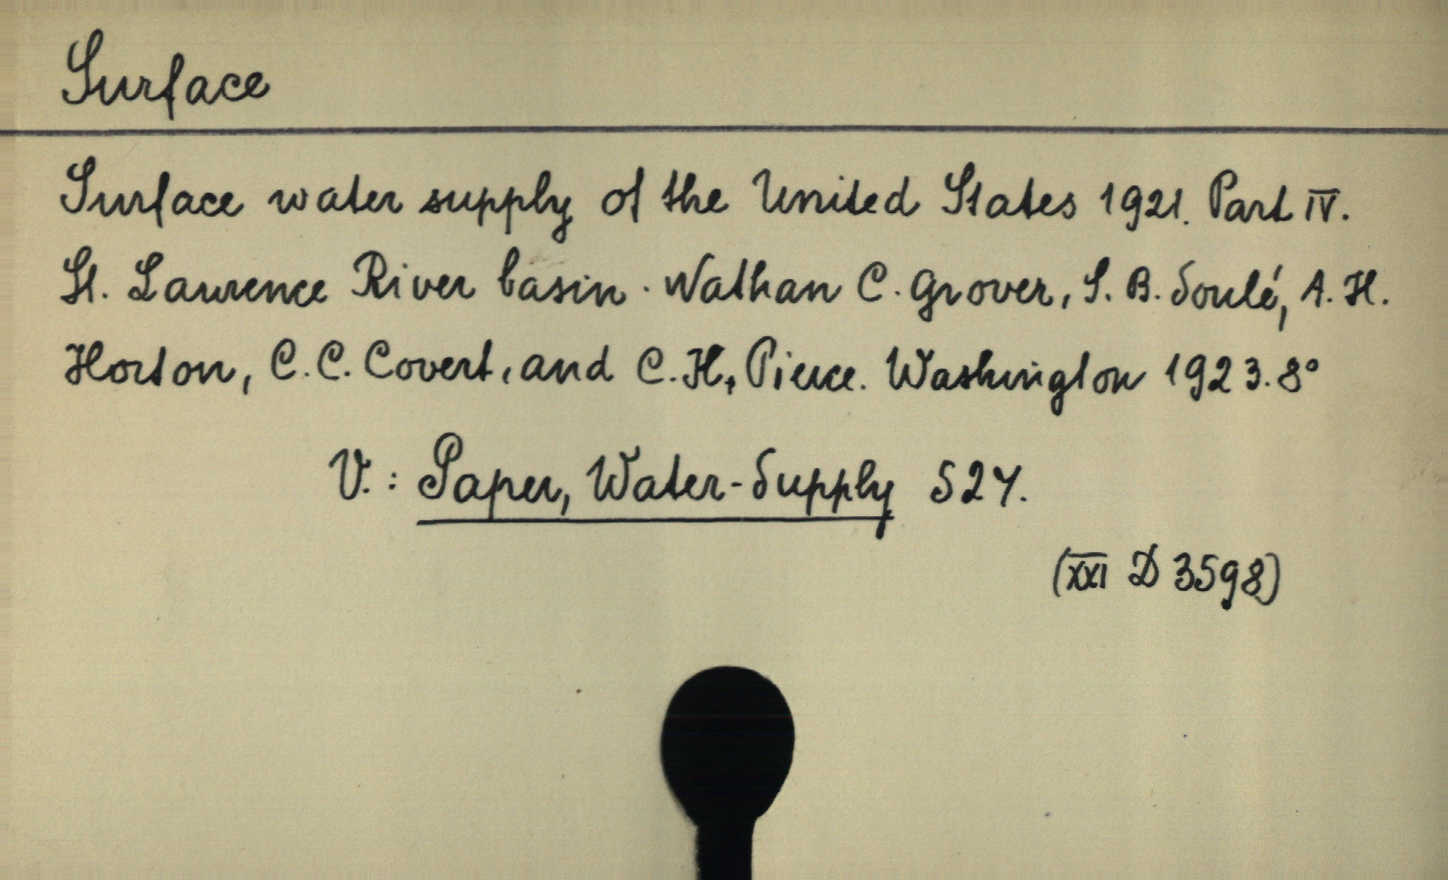 Surface
Surface water supply of the United States 1921. Part IV.
St. Lawrence River basin. Nathan C. Grover, S. B. Soulé, A. H.
Horton, C. C. Covert, and C. H. Pierce. Washington 1923. 8°
V.: Paper, Water-Supply 524.
(XXI D 3598)